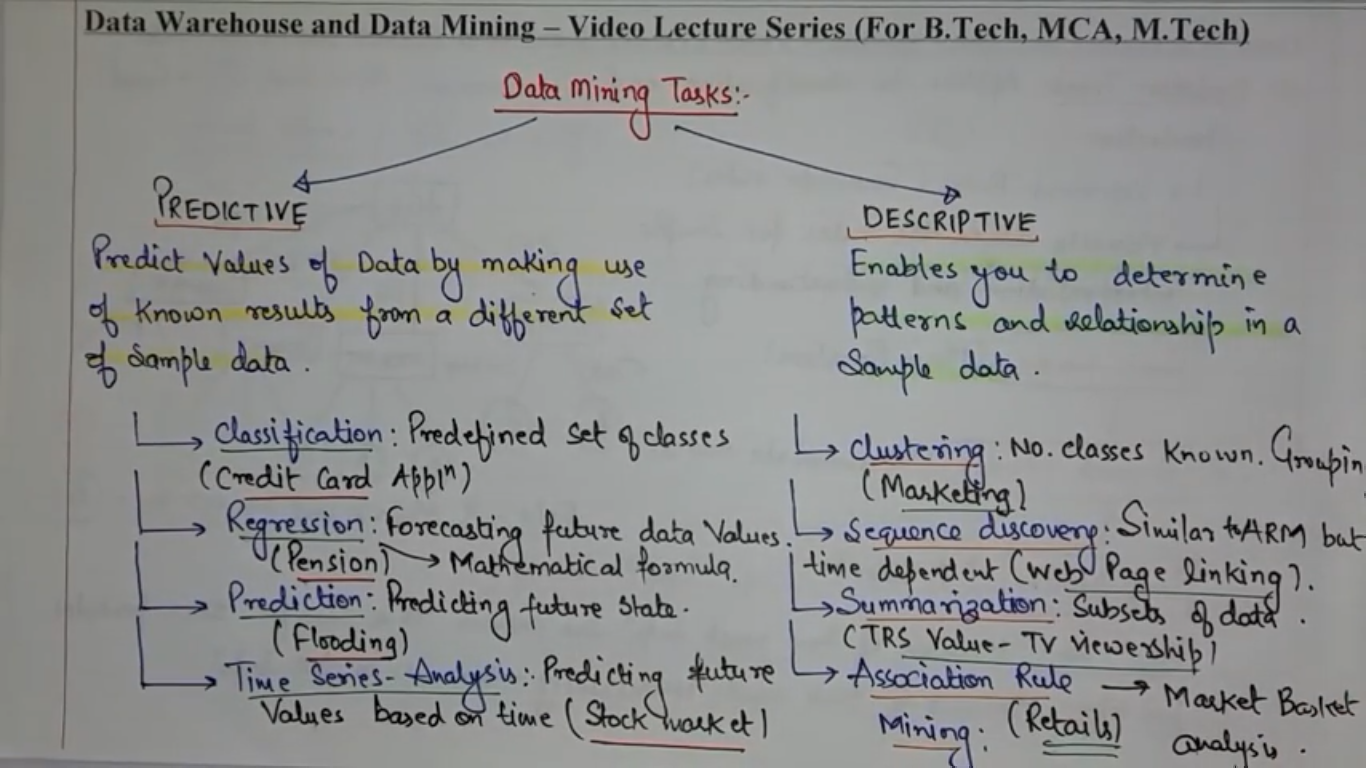 Data Warehouse and Data Mining – Video Lecture Series (For B.Tech, MCA, M.Tech)
Data Mining Tasks:-
PREDICTIVE
Predict Values of Data by making use
of Known results from a different set
of Sample data.
Classification: Predefined set of classes
(Credit Card Applⁿ)
Regression: Forecasting future data Values.
(Pension) → Mathematical formula.
Prediction: Predicting future state.
(Flooding)
Time Series-Analysis: Predicting future
Values based on time (Stock market)
DESCRIPTIVE
Enables you to determine
patterns and relationship in a
Sample data.
Clustering: No. classes known. Groupin
(Marketing)
Sequence discovery: Similar to ARM but
time dependent (Web Page linking).
Summarization: Subsets of data.
(TRS Value - TV viewership)
Association Rule → Market Basket
Mining: (Retails) analysis.